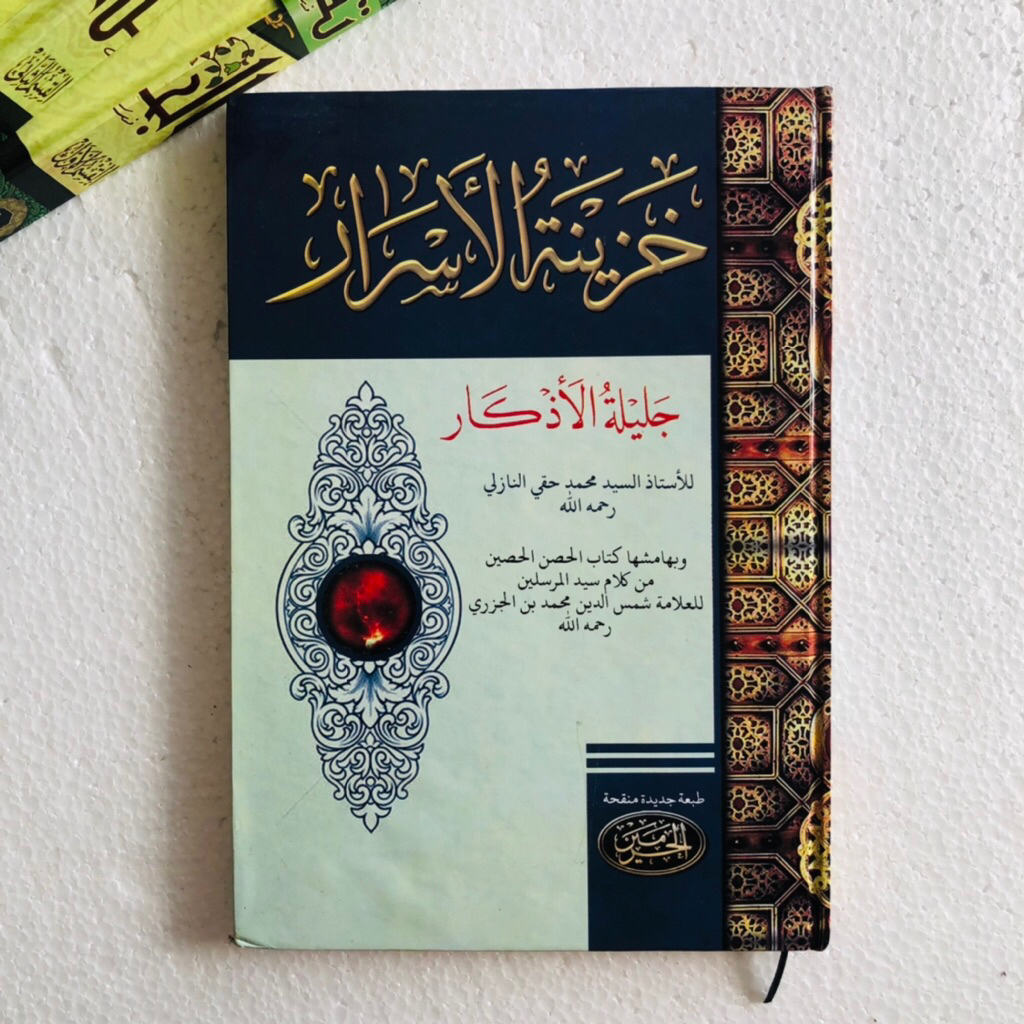 خَزِينَةُ الْأَسْرَارِ
جَلِيلَةُ الْأَذْكَار
للأستاذ السيد محمد حقي النازلي
رحمه الله
وبهامشها كتاب الحصن الحصين
من كلام سيد المرسلين
للعلامة شمس الدين محمد بن الجزري
رحمه الله
طبعة جديدة منقحة
الحرمين